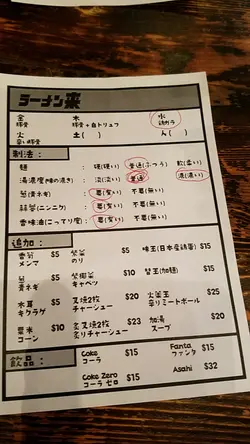 ラーメン来
金 木 水
豚骨 豚骨+白トリュフ 鶏ガラ
火 土( ) ん( )
辛い豚骨
制法:
麺 硬(硬い) 普通(ふつう) 軟(柔い)
湯濃度(味の濃さ) 淡(淡い) 普通 濃(濃い)
葱(青ネギ) 要(要い) 不要(無い)
蒜蓉(ニンニク) 要(要い) 不要(無い)
香味油(こってり度) 要(要い) 不要(無い)
追加:
$5 紫菜 $5 味玉(日本産鶏蛋) $15
メンマ のり
葱 $5 椰菜 $10 替玉(加麺) $15
青ネギ キャベツ
木耳 $5 叉焼2枚 $20 火釜王 $25
キクラゲ チャーシュー 辛リミートボール
粟米 $10 炙叉焼2枚 $23 加湯 $20
コーン 炙りチャーシュー スープ
飲品:
Coke $15 Fanta $15
コーラ ファンタ
Coke Zero $15 Asahi $32
コーラ ゼロ